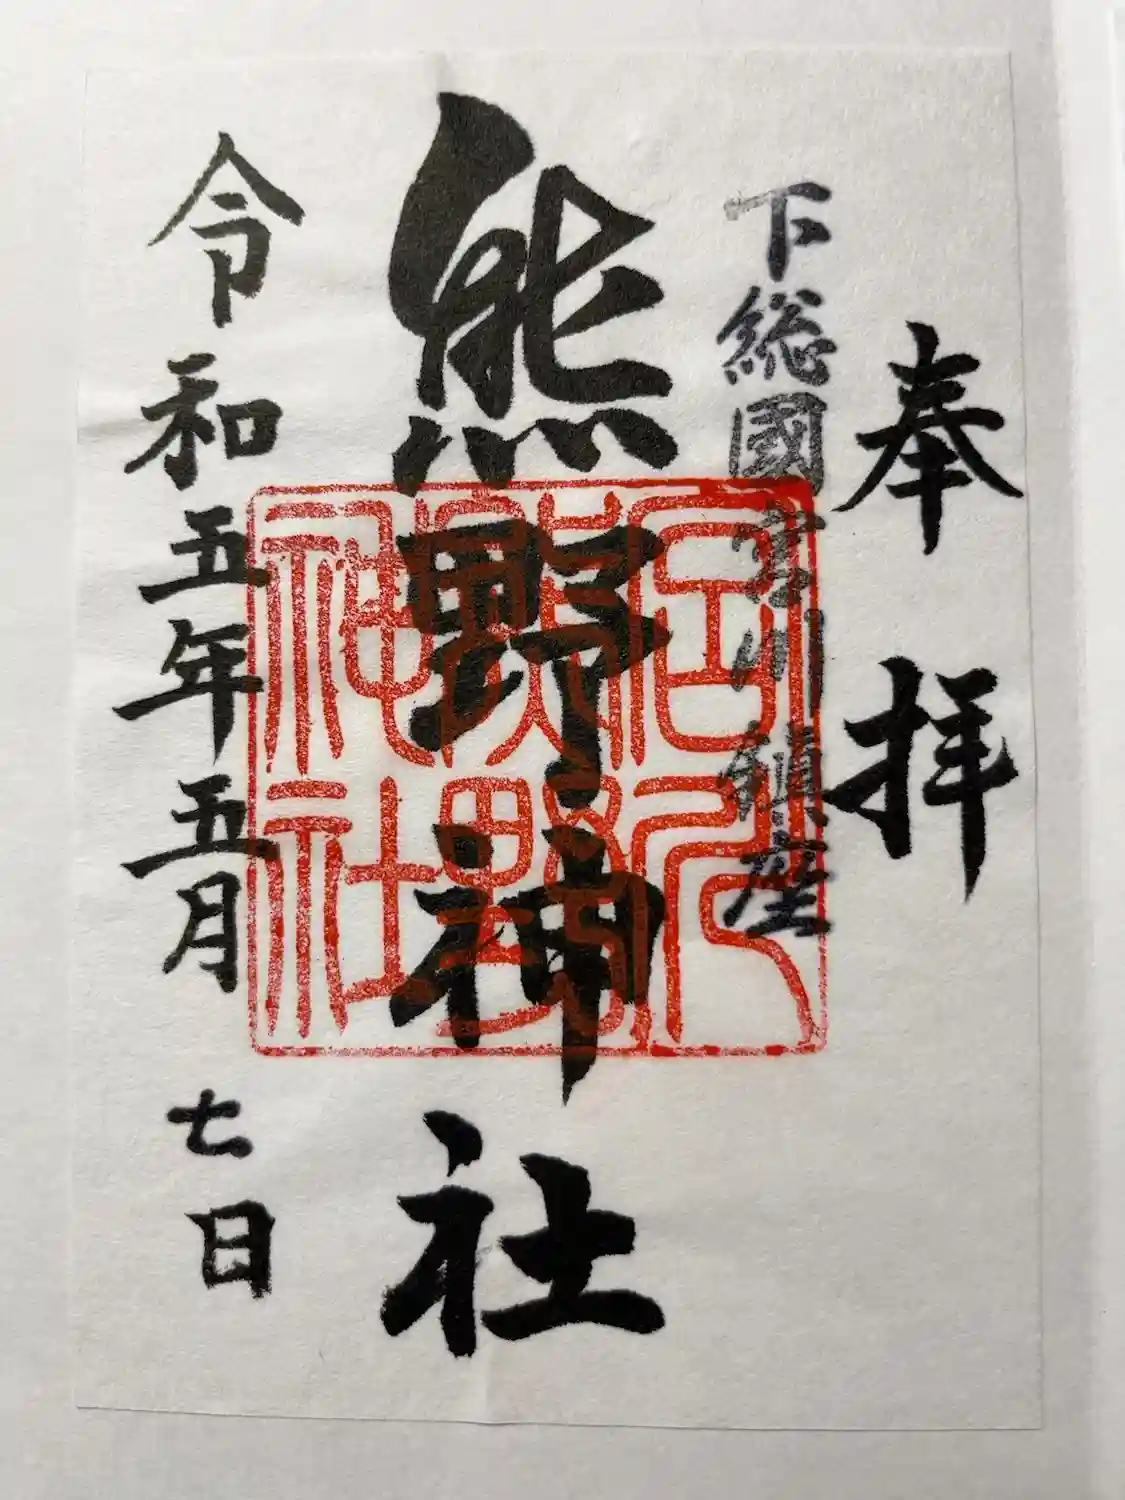 奉拝
下総國宮川鎮座
熊野神社
宮川
熊野
神社
令和五年五月七日